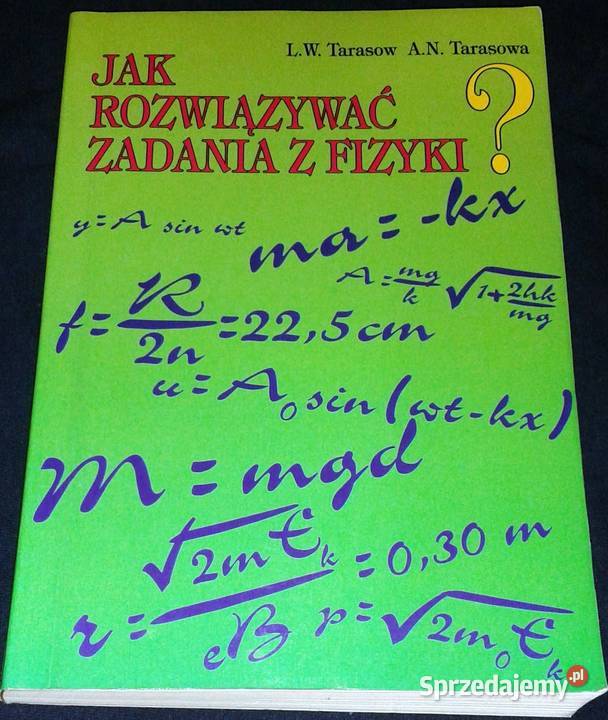 L.W. Tarasow A.N. Tarasowa
JAK
ROZWIĄZYWAĆ
ZADANIA Z FIZYKI ?
y=A sin wt
ma=-kx
A=mg/k √1+2hk/mg
f=R/2n=22,5cm
u=A₀sin(wt-kx)
M=mgd
r=√2mEₖ/eB=0,30 m
p=√2m₀Eₖ
Sprzedajemy.pl